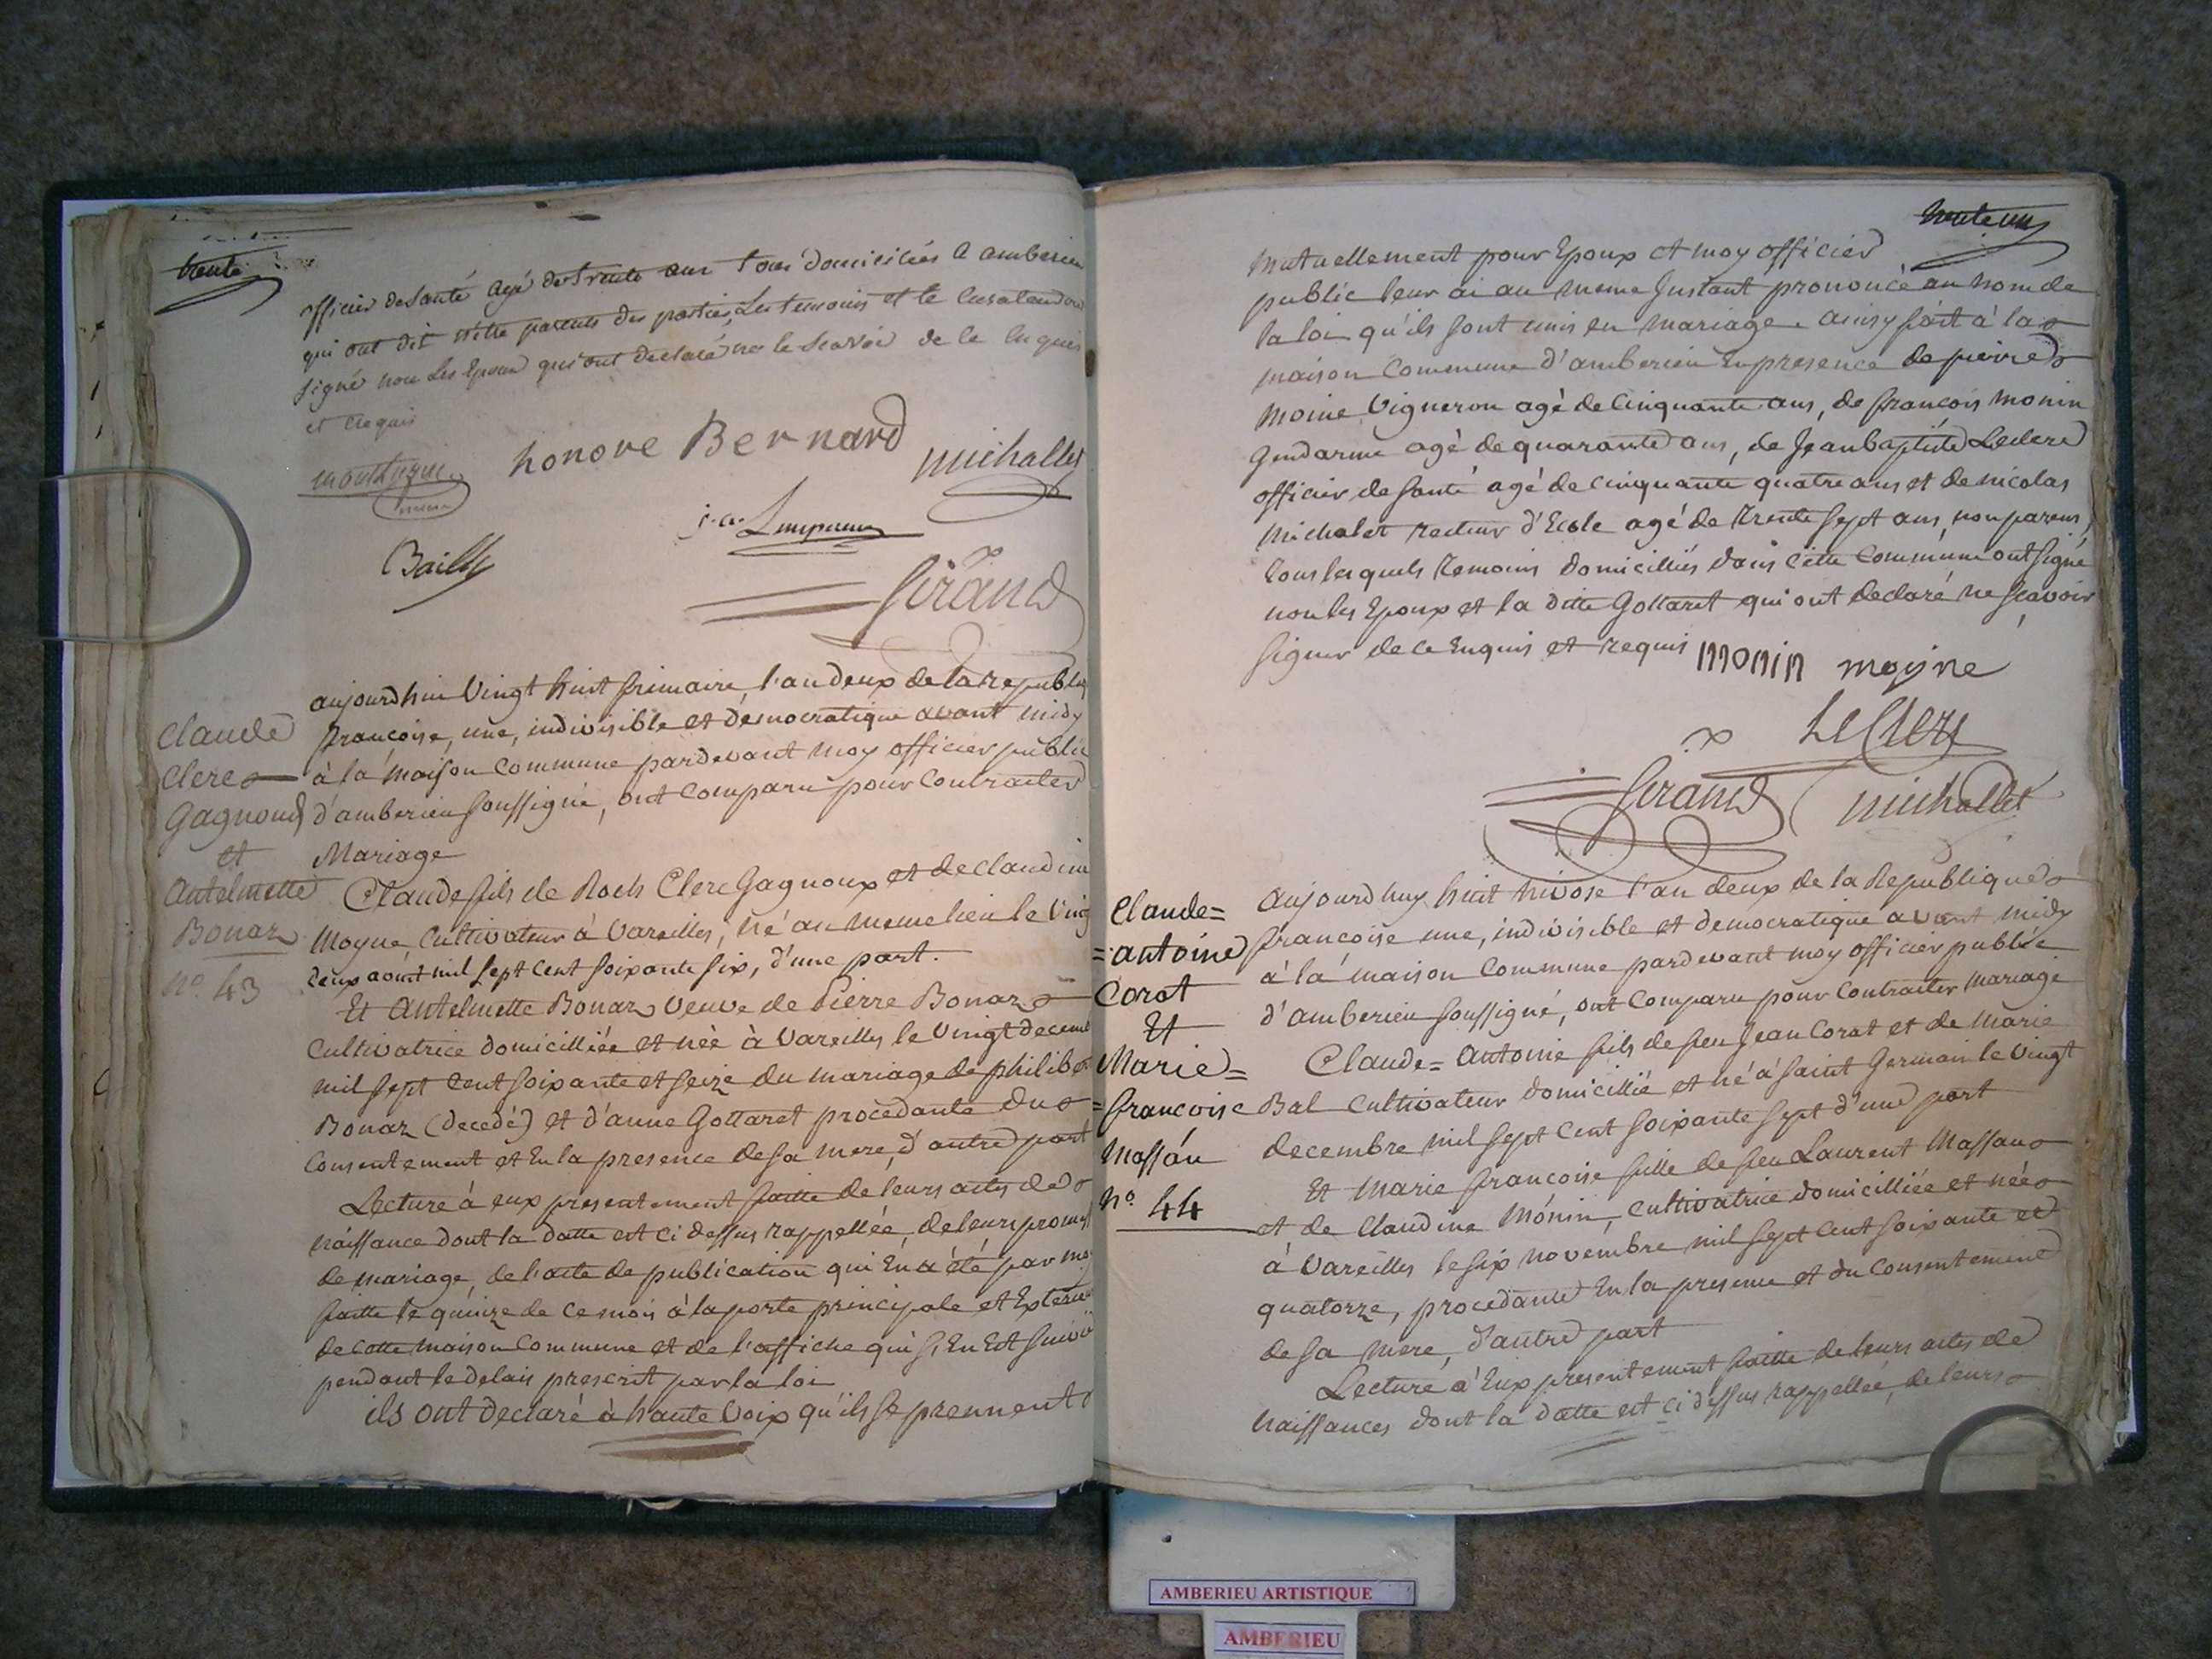 trente
officier de santé agé de trente ans tous domiciliés a amberieu
qui ont dit n'être parents des parties, Les temoins et le
signé non les Epoux qui ont declaré ne le scavoir de ce enquis
et requis
honore Bernard
michallet
Bailly
Girand
Claude
Clerc
Gagnoud
et
Antelmette
Bonaz
n°. 43
aujourdhui vingt huit frimaire, l'an deux de la republiq
francoise, une, indivisible et démocratique avant midy
à la maison commune pardevant moy officier public
d'amberieu soussigné, ont comparu pour contracter
Mariage
Claude fils de Roch Clerc Gagnoux et de claudine
Moyne Cultivateur à Vareilles, né au meme lieu le Ving
deux août mil sept cent soixante six, d'une part.
Et Antelmette Bonaz veuve de Pierre Bonaz
Cultivatrice domicilliée et née à Vareilles le vingt decem
mil sept cent soixante et seize du mariage de philiber
Bonaz (decedé) et d'anne Gottaret procedante du
Consentement et en la presence de sa mere, d'autre part
Lecture à eux presentement faitte de leurs actes de
naissance dont la datte est ci dessus rappellée, de leurs promess
de mariage, de l'acte de publication qui en a été par moy
faitte le quinze de ce mois à la porte principale et Exterieu
de cette maison commune et de l'affiche qui s'en est suivi
pendant le delais prescrit par la loi
ils ont declaré à haute voix qu'ils se prennent
trente un
mutuellement pour Epoux et moy officier
public leur ai au meme Instant prononcè au nom de
la loi qu'ils sont unis en mariage. ainsy fait à la
maison Commune d'amberieu En presence de pierre
moine Vigneron agé de Cinquante ans, de françois monin
Gendarme agé de quarante ans, de Jean baptiste Leclerc
officier de santé agé de cinquante quatre ans et de nicolas
Michalet recteur d'Ecole agé de trente sept ans, non parens,
tous lesquels temoins domicilliés dans cette Commune ont signé
non les Epoux et la ditte Gottaret qui ont declaré ne scavoir
signer de ce Enquis et requis monin moyne
LeClerc
Girand michallet
Claude=
=antoine
Corat
Et
Marie=
=francoise
Massan
n° 44
Aujourdhuy huit nivose l'an deux de la Republique
françoise une, indivisible et democratique avant midy
à la maison Commune pardevant moy officier public
d'amberieu soussigné, ont Comparu pour Contracter mariage
Claude=Antoine fils de feu Jean Corat et de Marie
Bal Cultivateur domicillié et né à saint Germain le Vingt
decembre mil sept cent soixante sept d'une part
Et Marie francoise fille de feu Laurent Massan
et de Claudine Monin, Cultivatrice domicilliée et née
à Vareilles le six novembre mil sept cent soixante et
quatorze, procedante En la presence et du Consentement
de sa mere, d'autre part
Lecture à Eux presentement faitte de leurs actes de
naissances dont la datte est ci dessus rappellée, de leurs
AMBERIEU ARTISTIQUE
AMBERIEU